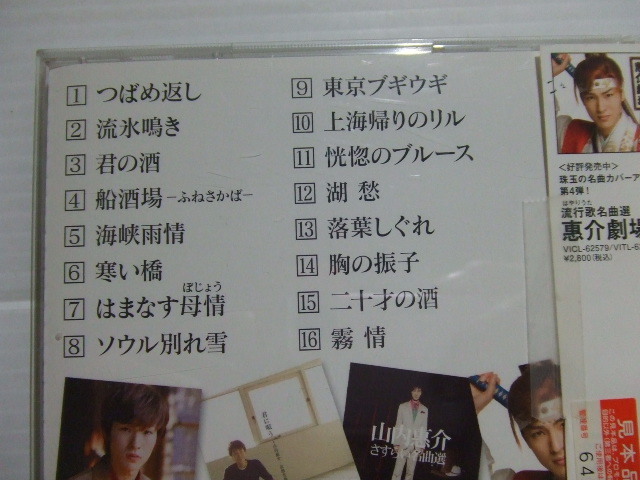 1 つばめ返し
2 流氷鳴き
3 君の酒
4 船酒場−ふねさかば−
5 海峡雨情
6 寒い橋
ぼじょう
7 はまなす母情
8 ソウル別れ雪
9 東京ブギウギ
10 上海帰りのリル
11 恍惚のブルース
12 湖 愁
13 落葉しぐれ
14 胸の振子
15 二十才の酒
16 霧 情
<好評発売中>
珠玉の名曲カバーア
第4弾!
はやりうた
流行歌名曲選
惠介劇場
VICL-62579/VITL-6
¥2,800(税込)
山内惠介
名曲選
見本品
64